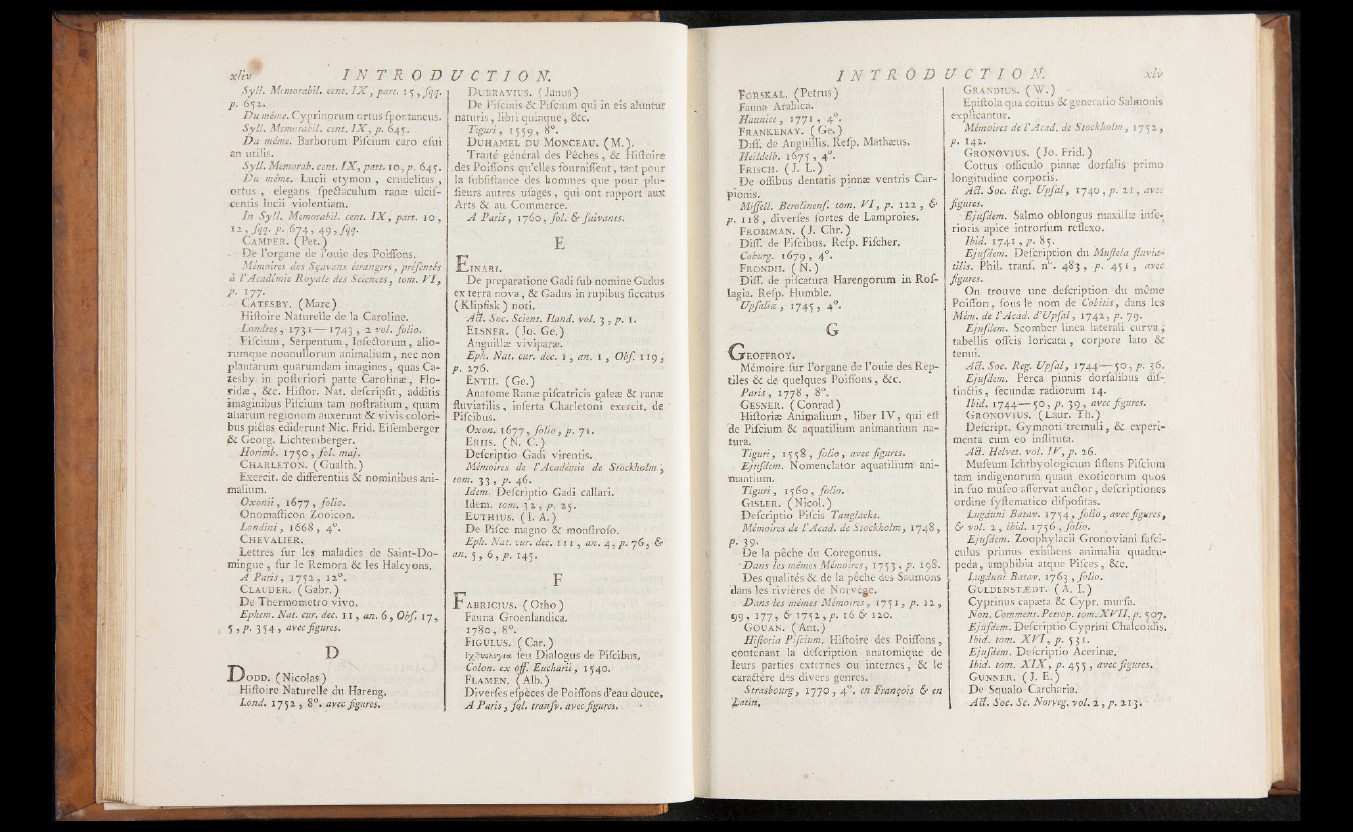 xliv INTRODUCTION.
Syll. Memorabil. cent. IX, part. 25, ſqq.
p. 652.
Du même. Cyprinorum ortus ſpontaneus.
Syll. Memorabil. cent. IX, p. 645.
Du même. Barborum Piſcium caro eſui
an utilis.
Syll. Memorab. cent. IX, part. 10, p. 645.
Du même. Lucii etymon, crudelitas,
ortus, elegans ſpectaculum ranæ ulciſ-
centis lucii violentiam.
In Syll. Memorabil. cent. IX, part. 10,
12, ſqq. p. 674, 49, ſqq.
CAMPER. (Pet.)
De l'organe de l'ouie des Poiſſons.
Mémoires des Sçavans étrangers, préſentés
à l'Académie Royale des Sciences, tom. VI,
p. 177.
CATESBY. (Marc)
Hiſtoire Naturelle de la Caroline.
Londres, 1731—1743, 2 vol. folio.
Piſcium, Serpentum, Inſectorum, alio-
rumque nonnullorum animalium, nec non
plantarum quarumdam imagines, quas Ca-
tesby in poſteriori parte Carolinæ, Flo-
ridæ, &c. Hiſtor. Nat. deſcripſit, additis
imaginibus Piſcium tam noſtratium, quam
aliarum regionum auxerunt & vivis colori-
bus pictas ediderunt Nic. Frid. Eiſemberger
& Georg. Lichtemberger.
Norimb. 1750, fol. maj.
CHARLETON. (Gualth.)
Exercit. de differentiis & nominibus ani-
malium.
Oxonii, 1677, folio.
Onomaſticon Zooicon.
Londini, 1668, 4°.
CHEVALIER.
Lettres ſur les maladies de Saint-Do-
mingue, ſur le Remora & les Halcyons.
A Paris, 1752, 12°.
CLAUDER. (Gabr.)
De Thermometro vivo.
Ephem. Nat. cur. dec. 11, an. 6, Obſ. 17,
5, p. 354, avec figures.
D
DODD. (Nicolas)
Hiſtoire Naturelle du Hareng.
Lond. 1752, 8°. avec figures.
DUBRAVIUS. (Janus)
De Piſcinis & Piſcium qui in eis aluntur
naturis, libri quinque, &c.
Tiguri, 1559, 8°.
DUHAMEL DU MONCEAU. (M.).
Traité général des Pêches, & Hiſtoire
des Poiſſons qu'elles fourniſſent, tant pour
la ſubſiſtance des hommes que pour plu-
ſieurs autres uſages, qui ont rapport aux
Arts & au Commerce.
A Paris, 1760, fol. & ſuivantes.
E
EINARI.
De preparatione Gadi ſub nomine Gadus
ex terra nova, & Gadus in rupibus ſiccatus
(Klipfisk) noti.
Act. Soc. Scient. Iland. vol. 3, p. 1.
ELSNER. (Jo. Ge.)
Anguillæ viviparæ.
Eph. Nat. cur. dec. 1, an. 1, Obſ. 119,
p. 276.
ENTII. (Ge.)
Anatome Ranæ piſcatricis galeæ & ranæ
fluviatilis, inſerta Charletoni exercit. de
Piſcibus.
Oxon. 1677, folio, p. 71.
ERIIS. (N. C.)
Deſcriptio Gadi virentis.
Mémoires de l'Académie de Stockholm,
tom. 33, p. 46.
Idem. Deſcriptio Gadi callari.
Idem. tom. 32, p. 25.
EUTHIUS. (I. A.)
De Piſce magno & monſtroſo.
Eph. Nat. cur. dec. 111, an. 4, p. 76, &
an. 5, 6, p. 145.
F
FABRICIUS. (Otho)
Fauna Groenlandica.
1780, 8°.
FIGULUS. (Car.)
ſeu Dialogus de Piſcibus.
Colon. ex off. Eucharii, 1540.
FLAMEN. (Alb.)
Diverſes eſpèces de Poiſſons d'eau douce,
A Paris, fol. tranſv. avec figures.
INTRODUCTION. xlv
FORSKAL. (Petrus)
Fauna Arabica.
Hauniæ, 1771, 4°.
FRANKENAY. (Ge.)
Diſſ. de Anguillis. Reſp. Mathæus.
Heildelb. 1675, 4°.
FRISCH. (J. L.)
De oſſibus dentatis pinnæ ventris Car-
pionis.
Miſſell. Berolinenſ. tom. VI, p. 122, &
p. 118, diverſes ſortes de Lamproies.
FROMMAN. (J. Chr.)
Diſſ. de Piſcibus. Reſp. Fiſcher.
Coburg. 1679, 4°.
FRONDII. (N.)
Diſſ. de piſcatura Harengorum in Roſ-
lagia. Reſp. Humble.
Upſaliæ, 1745, 4°.
G
GEOFFROY.
Mémoire ſur l'organe de l'ouie des Rep-
tiles & de quelques Poiſſons, &c.
Paris, 1778, 8°.
GESNER. (Conrad)
Hiſtoriæ Animalium, liber IV, qui eſt
de Piſcium & aquatilium animantium na-
tura.
Tiguri, 1558, folio, avec figures.
Ejuſdem. Nomenclator aquatilium ani-
mantium.
Tiguri, 1560, folio.
GISLER. (Nicol.)
Deſcriptio Piſcis Tanglacke.
Mémoires de l'Acad. de Stockholm, 1748,
p. 39.
De la pêche du Coregonus.
Dans les mêmes Mémoires, 1753, p. 198.
Des qualités & de la pêche des Saumons
dans les rivières de Norvège.
Dans les mêmes Mémoires, 1751, p. 12,
99, 177, & 1752, p. 16 & 120.
GOUAN. (Ant.)
Hiſtoria Piſcium. Hiſtoire des Poiſſons,
contenant la deſcription anatomique de
leurs parties externes ou internes, & le
caractère des divers genres.
Strasbourg, 1770, 4°. en François & en
Latin.
GRANDIUS. (W.)
Epiſtola qua coitus & generatio Salmonis
explicantur.
Mémoires de l'Acad. de Stockholm, 1752,
p. 142.
GRONOVIUS. (Jo. Frid.)
Cottus oſſiculo pinnæ dorſalis primo
longitudine corporis.
Act. Soc. Reg. Upſal, 1740, p. 21, avec
figures.
Ejuſdem. Salmo oblongus maxillæ infe-
rioris apice introrſum reflexo.
Ibid. 1741, p. 85.
Ejuſdem. Deſcription du Muſtela fluvia-
tilis. Phil. tranſ. n°. 483, p. 451, avec
figures.
On trouve une deſcription du même
Poiſſon, ſous le nom de Cobitis, dans les
Mém. de l'Acad. d'Upſal, 1742, p. 79.
Ejuſdem. Scomber linea laterali curva,
tabellis oſſeis loricata, corpore lato &
tenui.
Act. Soc. Reg. Upſal, 1744—50, p. 36.
Ejuſdem. Perça pinnis dorſalibus diſ-
tinctis, ſecundæ radiorum 14.
Ibid. 1744—50, p. 39, avec figures.
GRONOVIUS. (Laur. Th.)
Deſcript. Gymnoti tremuli, & experi-
menta cum eo inſtituta.
Act. Helvet. vol. IV, p. 26.
Muſeum Ichthyologicum ſiſtens Piſcium
tam indigenorum quam exoticorum quos
in ſuo muſeo aſſervat auctor, deſcriptiones
ordine ſyſtematico diſpoſitas.
Lugduni Batav. 1754, folio, avec figures,
& vol. 2, ibid. 1756, folio.
Ejuſdem. Zoophylacii Gronoviani faſci-
culus primus exhibens animalia quadru-
peda, amphibia atque Piſces, &c.
Lugduni Batav. 1763, folio.
GULDENSTÆDT. (A. I.)
Cyprinus capæta & Cypr. murſa.
Nov. Comment. Petrop. tom. XVII, p. 507.
Ejuſdem. Deſcriptio Cyprini Chalcoidis.
Ibid. tom. XVI, p. 531.
Ejuſdem. Deſcriptio Acerinæ.
Ibid. tom. XIX, p. 455, avec figures.
GUNNER. (J. E.)
De Squalo Carcharia.
Act. Soc. Sc. Norveg. vol. 2, p. 213.